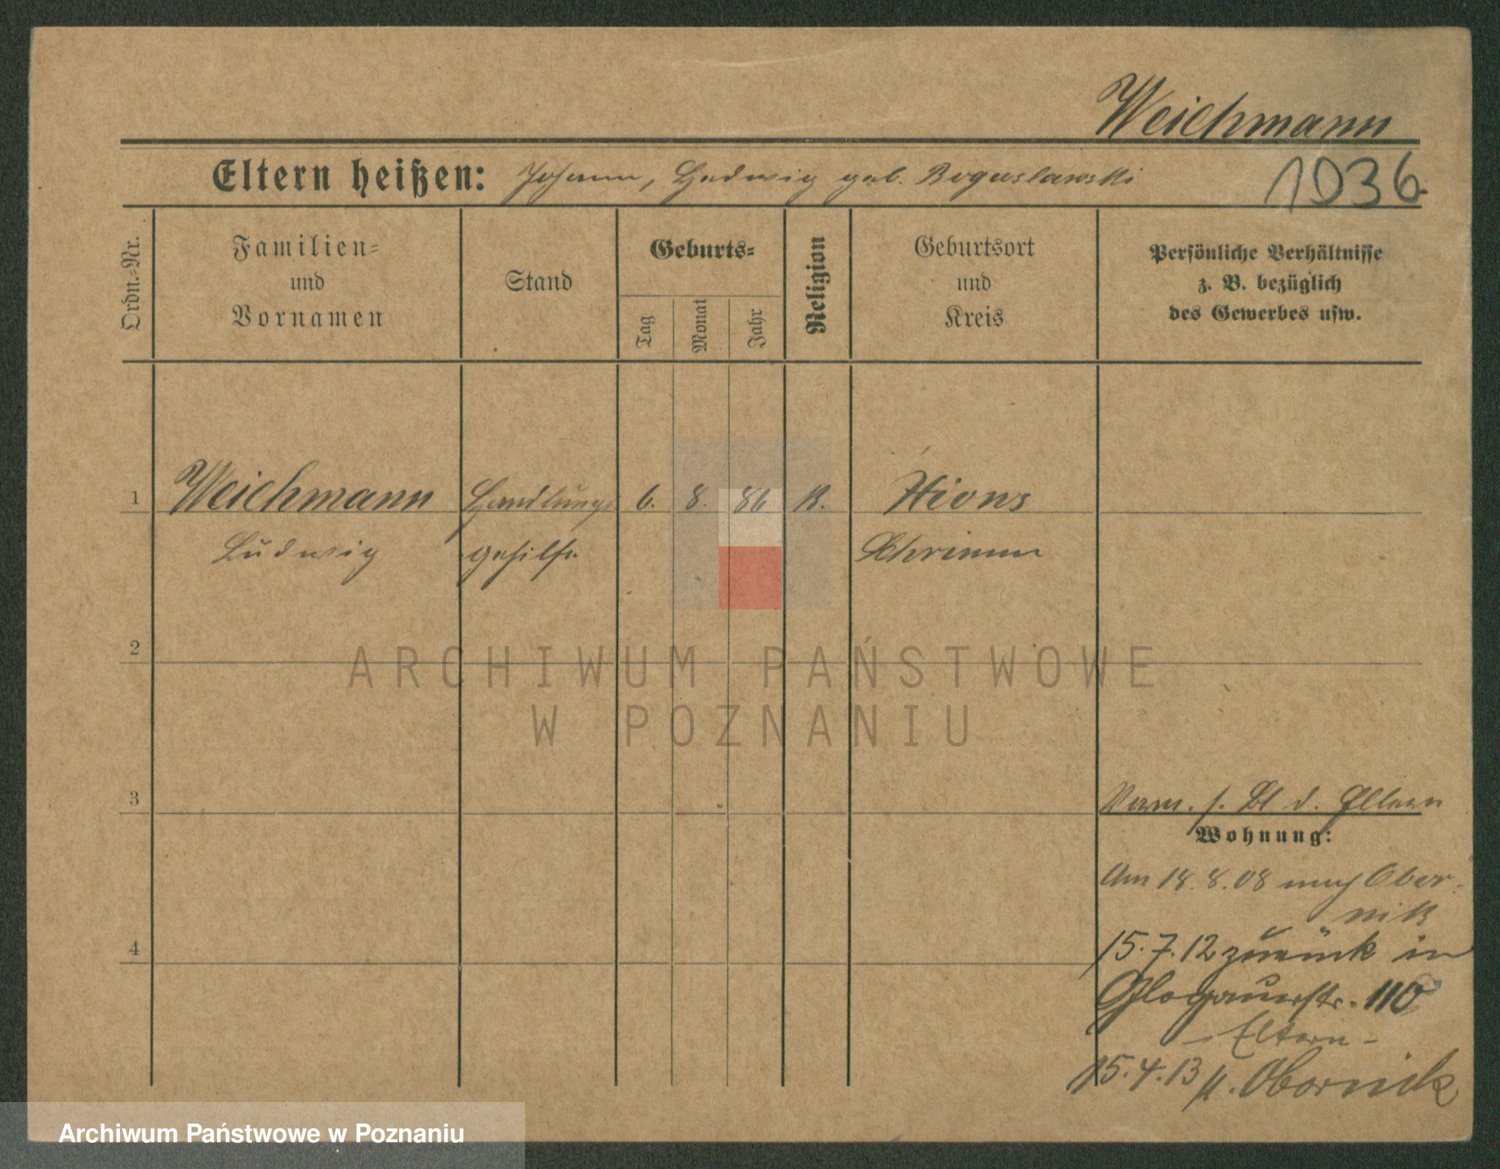 Weichmann
Eltern heißen: Johann, Hedwig geb. Boguslawski
1036.
Ordn.-Nr.
Familien-
und
Vornamen
Stand
Geburts-
Tag
Monat
Jahr
Religion
Geburtsort
und
Kreis
Persönliche Verhältnisse
z. B. bezüglich
des Gewerbes usw.
1 Weichmann Handlungs 6. 8. 86 K. Xions
Ludwig gehilfe Schrimm
2
3
Verm. s. Bl d. Eltern
Wohnung:
Am 18.8.08 nach Obor-
nik
4
15.7.12 zurück in
Glogauerstr. 110
- Eltern -
15.4.13 n. Obornick
ARCHIWUM PAŃSTWOWE
W POZNANIU
Archiwum Państwowe w Poznaniu